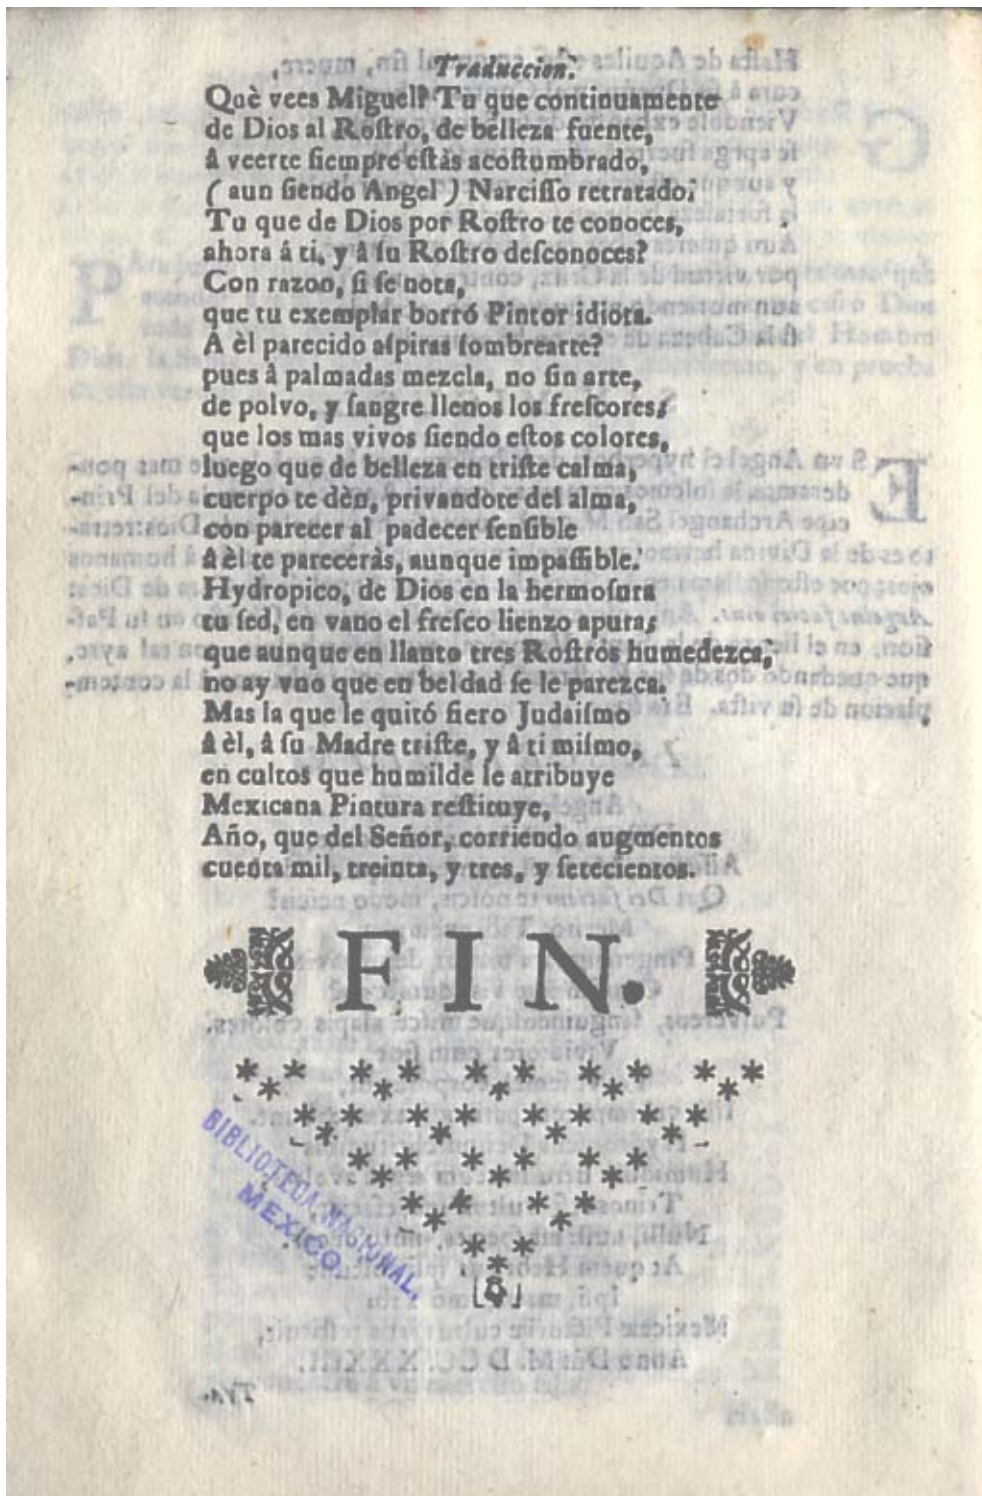 Traduccion.
Què vees Miguel? Tu que continuamente
de Dios al Roſtro, de belleza fuente,
â veerte ſiempre eſtàs acoſtumbrado,
( aun ſiendo Angel ) Narciſſo retratado;
Tu que de Dios por Roſtro te conoces,
ahora á ti, y â ſu Roſtro deſconoces?
Con razon, ſi ſe nota,
que tu exemplar borró Pintor idiota.
A èl parecido aſpiras ſombrearte?
pues â palmadas mezcla, no ſin arte,
de polvo, y ſangre llenos los freſcores;
que los mas vivos ſiendo eſtos colores,
luego que de belleza en triſte calma,
cuerpo te dèn, privandote del alma,
con parecer al padecer ſenſible
â èl te pareceràs, aunque impaſſible.
Hydropico, de Dios en la hermoſura
tu ſed, en vano el freſco lienzo apura;
que aunque en llanto tres Roſtros humedezca,
no ay vno que en beldad ſe le parezca.
Mas la que le quitó fiero Judaiſmo
â èl, â ſu Madre triſte, y â ti miſmo,
en cultos que humilde ſe atribuye
Mexicana Pintura reſtituye,
Año, que del Señor, corriendo augmentos
cuenta mil, treinta, y tres, y ſetecientos.
FIN.
BIBLIOTECA NACIONAL.
MEXICO.